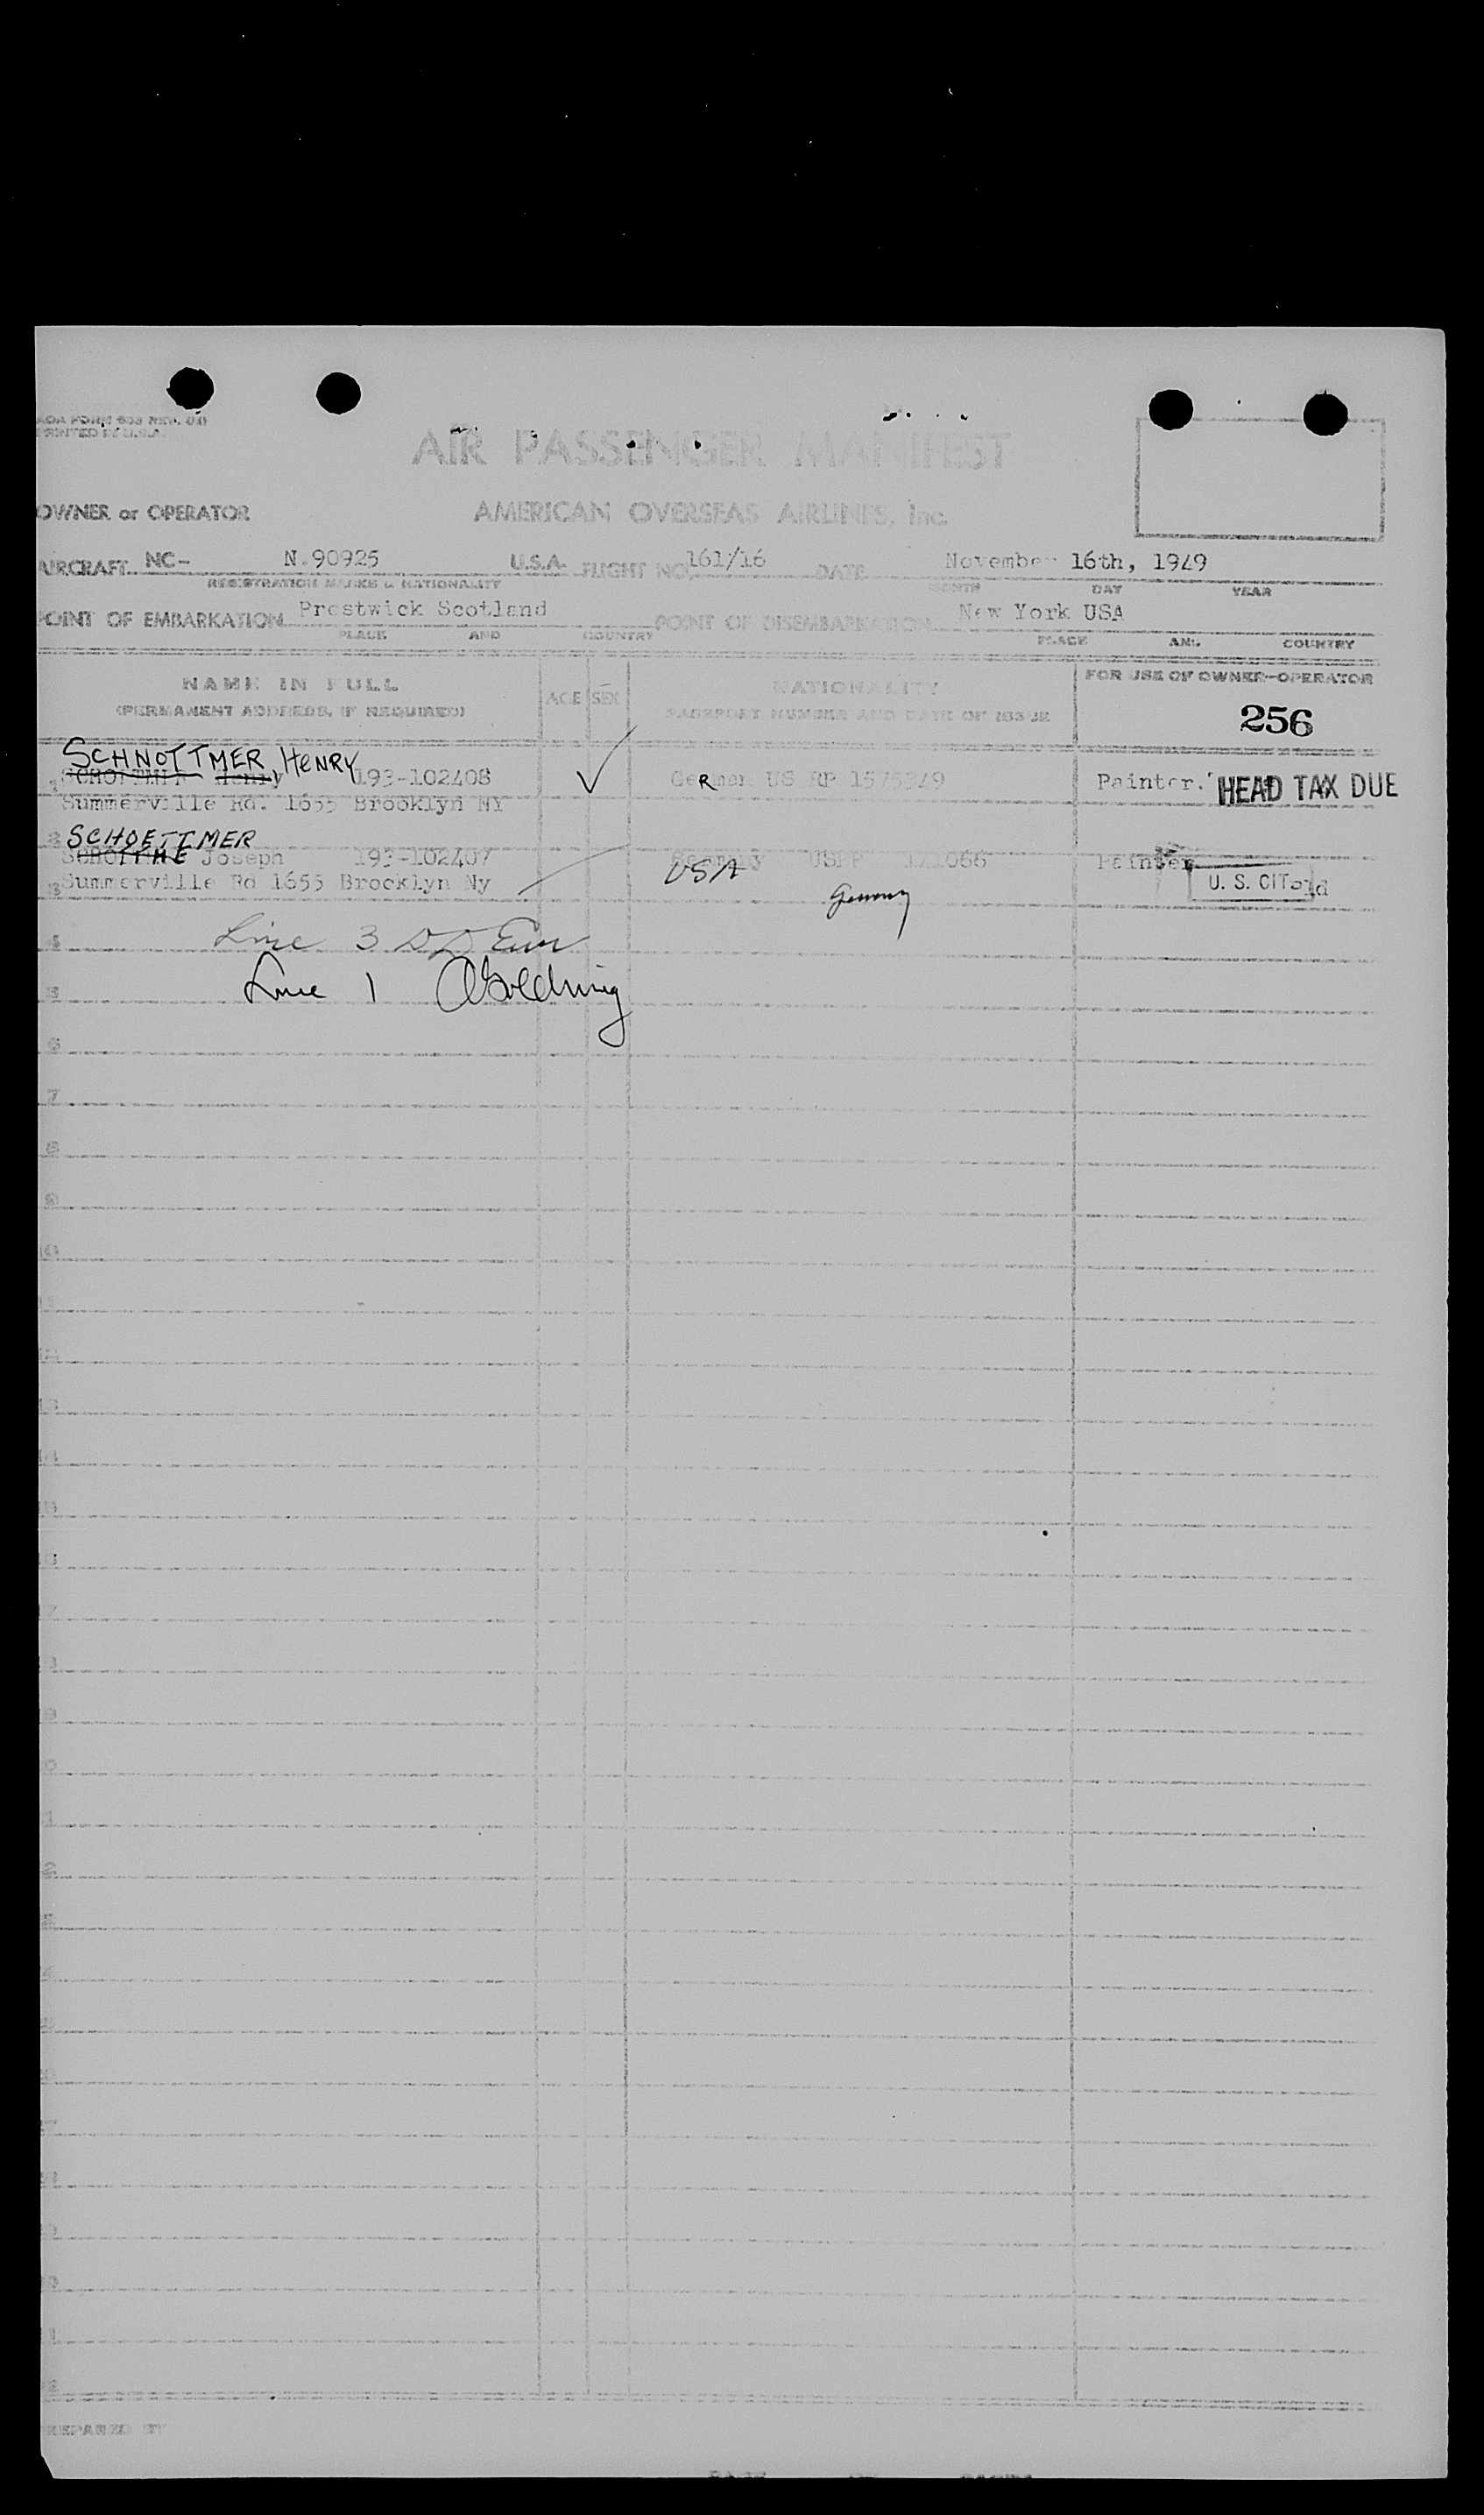 AOA FORM 603
PRINTED IN U.S.A.
AIR PASSENGER MANIFEST
OWNER or OPERATOR AMERICAN OVERSEAS AIRLINES, Inc.
AIRCRAFT NC- N.90925 U.S.A. FLIGHT NO. 161/16 DATE November 16th, 1949
REGISTRATION MARKS & NATIONALITY MONTH DAY YEAR
POINT OF EMBARKATION Prestwick Scotland POINT OF DISEMBARKATION New York USA
PLACE AND COUNTRY PLACE AND COUNTRY
NAME IN FULL AGE SEX NATIONALITY FOR USE OF OWNER-OPERATOR
(PERMANENT ADDRESS, IF REQUIRED) PASSPORT NUMBER AND DATE OF ISSUE 256
SCHNOTTMER, HENRY
Henry 193-102408 German US RP Painter. HEAD TAX DUE
Summerville Rd. 1655 Brooklyn NY
SCHOETTMER
Joseph 193-102407 Germany USPP Painter
USA
Summerville Rd 1655 Brooklyn Ny U. S. CIT
Germany
Line 3
Line 1 Goldring
PREPARED BY